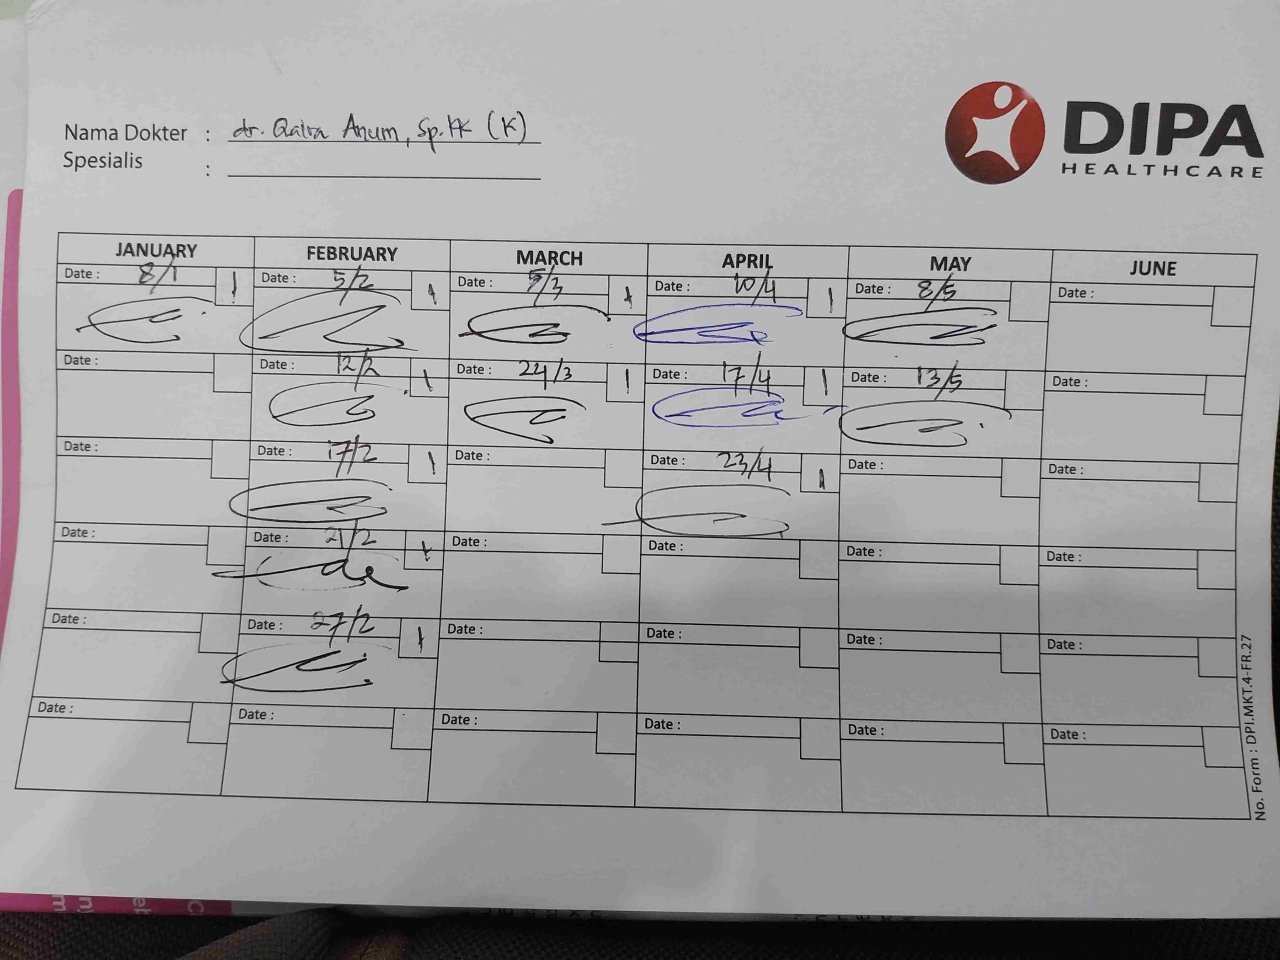 Nama Dokter : dr. Qaira Anum, Sp.KK (K)
Spesialis :
DIPA
HEALTHCARE
JANUARY FEBRUARY MARCH APRIL MAY JUNE
Date : 8/1 1 Date : 5/2 1 Date : 5/3 1 Date : 10/4 1 Date : 8/5 Date :
Date : Date : 12/2 1 Date : 24/3 1 Date : 17/4 1 Date : 13/5 Date :
Date : Date : 17/2 1 Date : Date : 23/4 1 Date : Date :
Date : Date : 21/2 1 Date : Date : Date : Date :
Date : Date : 27/2 1 Date : Date : Date : Date :
Date : Date : Date : Date : Date : Date :
No. Form : DPI.MKT.4-FR.27